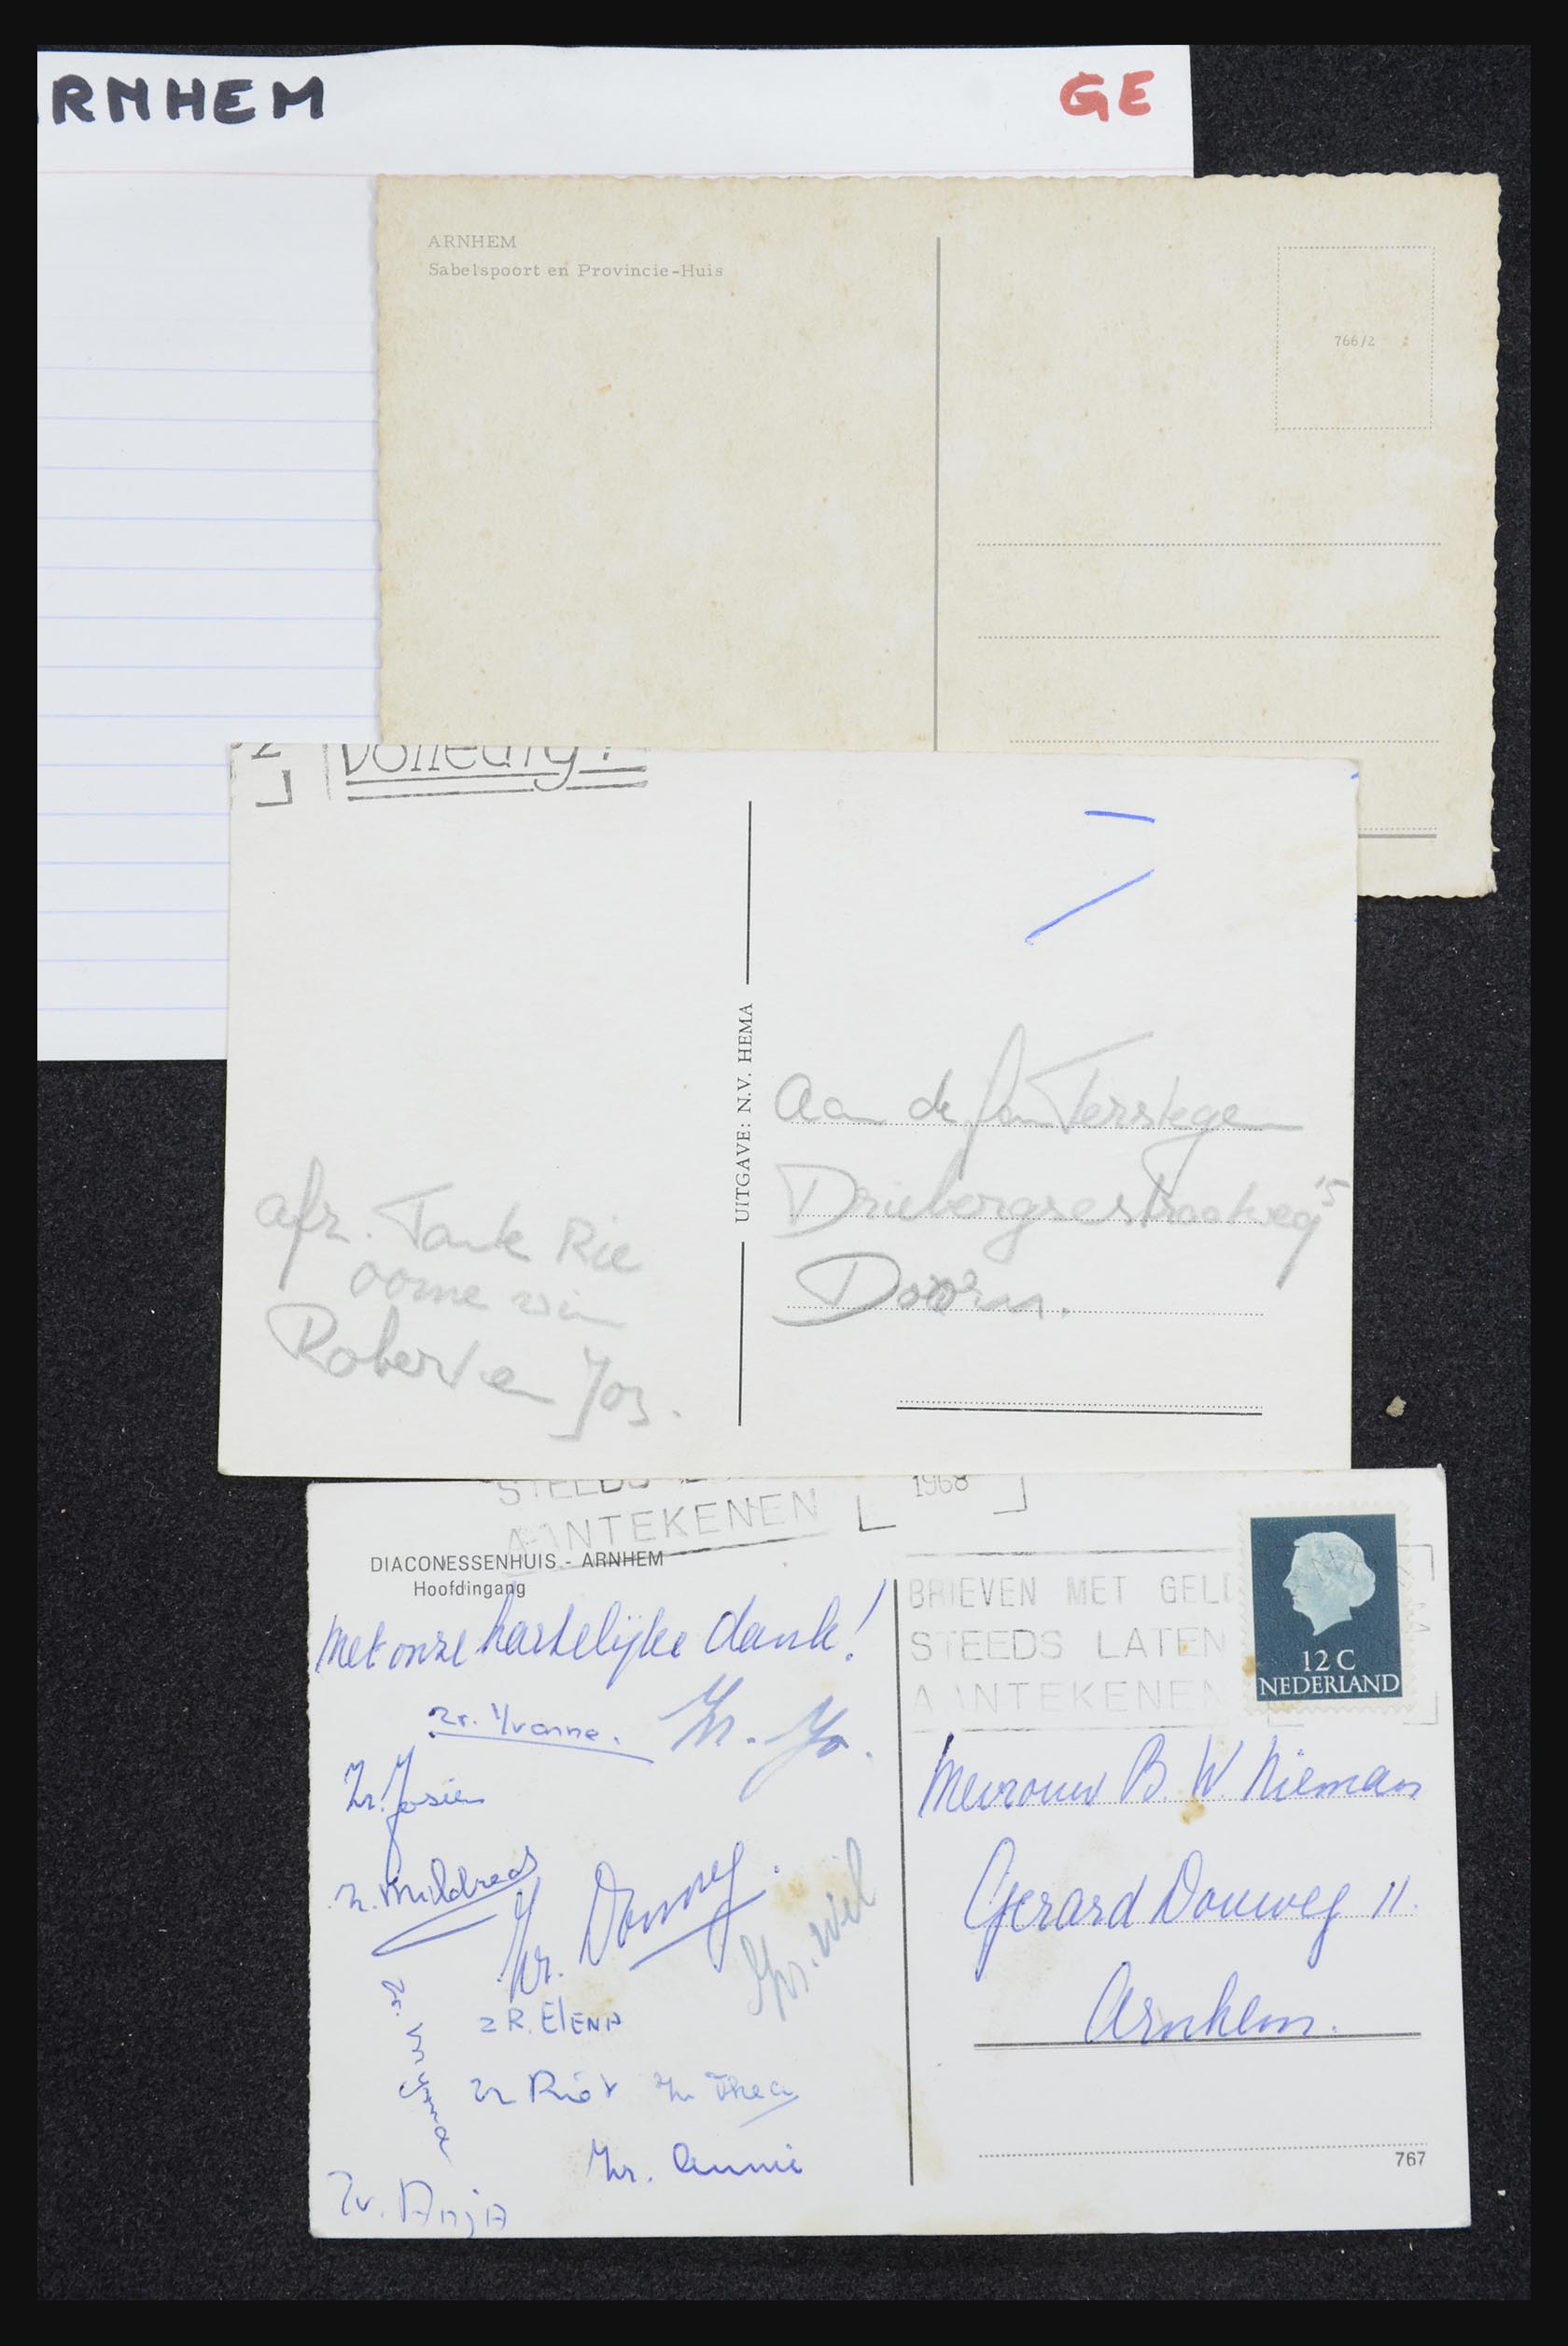 RNHEM
GE
ARNHEM
Sabelspoort en Provincie-Huis
766/2
Volledig!
UITGAVE: N.V. HEMA
Aan de fam Terstegen
Driebergsestraatweg 15
Doorn.
afz. Tante Rie
oome Wim
Robert en Jos.
STEEDS
AANTEKENEN
1968
DIACONESSENHUIS - ARNHEM
Hoofdingang
BRIEVEN MET GELD
STEEDS LATEN
AANTEKENEN
12 C
NEDERLAND
Met onze hartelijke dank!
Zr. Yvonne.
Zr. Jo.
Zr. Josien
Zr. Mildred
Zr.
Spr. Wil
ZR. ElENA
Zr Riet
Zr Thea
Zr.
Zr. Annie
Zr. Anja
Mevrouw B. W. Nieman
Gerard Douweg 11.
Arnhem.
767